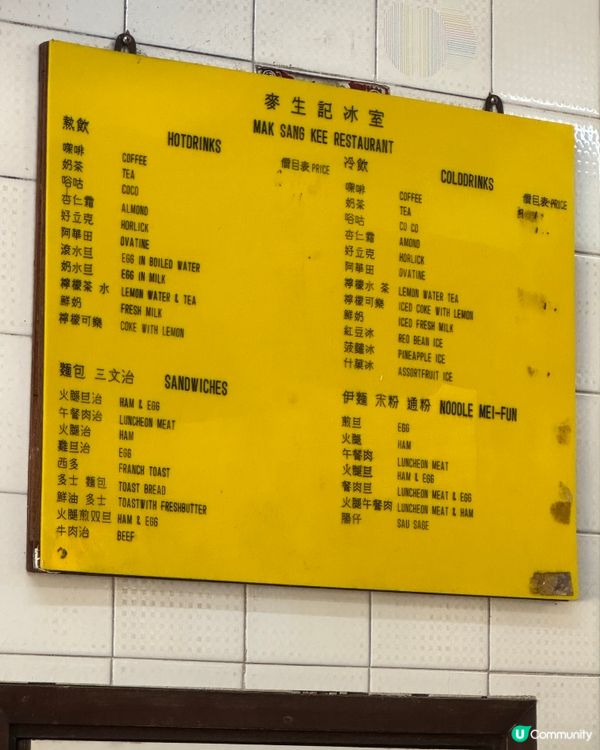 麥生記冰室
MAK SANG KEE RESTAURANT
熱飲 HOTDRINKS
價目表 PRICE
嘜啡 COFFEE
奶茶 TEA
唂咕 COCO
杏仁霜 ALMOND
好立克 HORLICK
阿華田 OVATINE
滾水旦 EGG IN BOILED WATER
奶水旦 EGG IN MILK
檸檬茶 水 LEMON WATER & TEA
鮮奶 FRESH MILK
檸檬可樂 COKE WITH LEMON
冷飲 COLDDRINKS
價目表 PRICE
嘜啡 COFFEE
奶茶 TEA
唂咕 CO CO
杏仁霜 AMOND
好立克 HORLICK
阿華田 OVATINE
檸檬水 茶 LEMON WATER TEA
檸檬可樂 ICED COKE WITH LEMON
鮮奶 ICED FRESH MILK
紅豆冰 RED BEAN ICE
菠蘿冰 PINEAPPLE ICE
什菓冰 ASSORTFRUIT ICE
麵包 三文治 SANDWICHES
火腿旦治 HAM & EGG
午餐肉治 LUNCHEON MEAT
火腿治 HAM
雞旦治 EGG
西多 FRANCH TOAST
多士 麵包 TOAST BREAD
鮮油 多士 TOASTWITH FRESHBUTTER
火腿煎双旦 HAM & EGG
牛肉治 BEEF
伊麵 米粉 通粉 NOODLE MEI-FUN
煎旦 EGG
火腿 HAM
午餐肉 LUNCHEON MEAT
火腿旦 HAM & EGG
餐肉旦 LUNCHEON MEAT & EGG
火腿午餐肉 LUNCHEON MEAT & HAM
腸仔 SAU SAGE
U Community